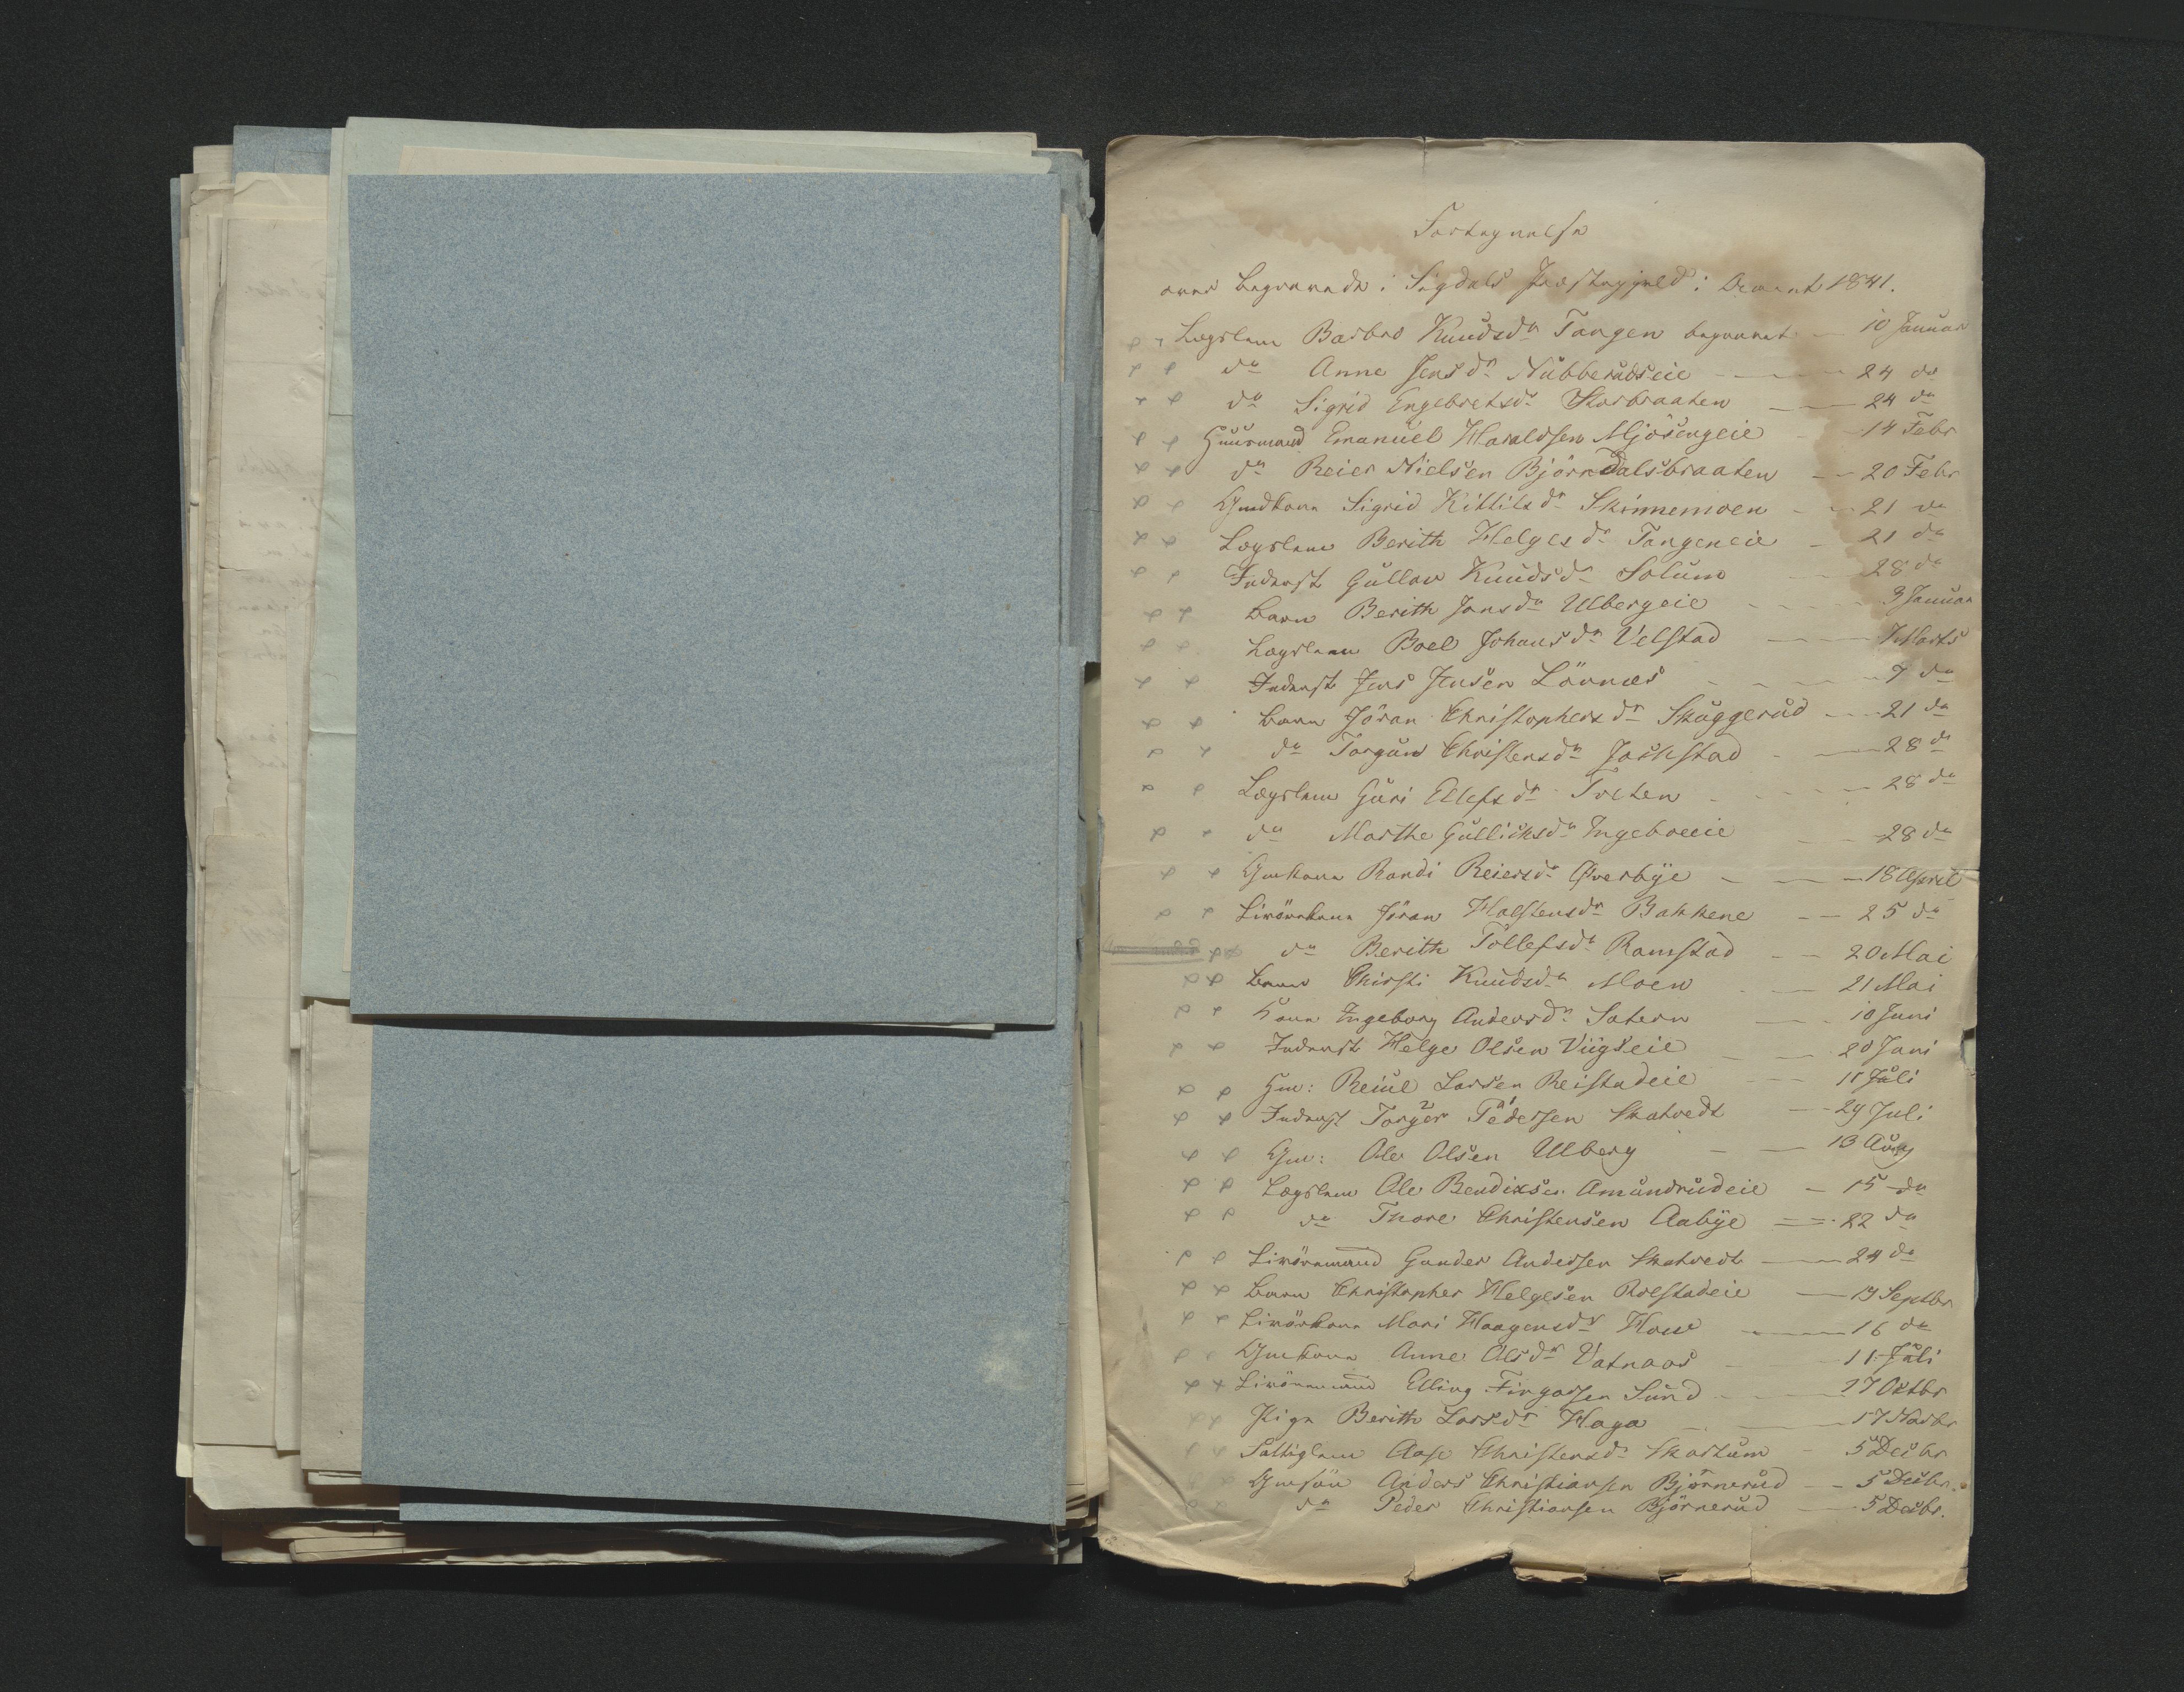 Fortegnelse
over Begravede i Sigdals Præstegjeld i Aaret 1841.
Lægslem Barbro Knudsdr Tangen begravet — 10 Januar
do Anne Jensdr Nubberudseie — 24 do
do Sigrid Engebretsdr Storbraaten — 24 do
Huusmand Emanuel Haraldsen Mjösengeie — 14 Febr
do Reier Nielsen Björndalsbraaten — 20 Febr
Gmdkone Sigrid Kittilsdr Skinnemoen — 21 do
Lægslem Berith Helgesdr Tangeneie — 21 do
Inderst Gullow Knudsdr Solum 28 do
Barn Berith Jonsdr Ulbergeie — 3 Januar
Lægslem Boel Johansdr Velstad — 7 Marts
Inderst Jens Jensen Lönnes — 7 do
Barn Jöran Christophersdr Skuggerud — 21 do
do Torgun Christensdr Jockstad — 28 do
Lægslem Guri Ellefsdr Tveten — 28 do
do Marthe Gullichsdr Ingeboeeie — 28 do
Gmkone Randi Reiersdr Øverbÿe — 18 April
Livörekone Jöran Halstensdr Bakkene — 25 do
do Berith Tollefsdr Ramstad — 20 Mai
Barn Chirsti Knudsdr Moen — 21 Mai
Kone Ingeborg Andersdr Satern — 10 Juni
Inderst Helge Olsen Viigseie — 20 Juni
Hm: Reiul Larsen Reistadeie — 11 Juli
Inderst Torger Pedersen Skatvedt — 29 Juli
Gm: Ole Olsen Ulberg — 13 Aug
Lægslem Ole Bendixsen Amundrudeie — 15 do
do Thore Christensen Aabÿe — 22 do
Livöremand Gunder Andersen Skatvedt — 24 do
Barn Christopher Helgesen Rolstadeie — 19 Septbr
Livörkone Mari Haagensdr Hove — 16 do
Gmkone Anne Olsdr Vatnaas — 11 Juli
Livöremand Elling Fingarsen Sund — 17 Oktbr
Pige Berith Larsdr Haga — 17 Novbr
Fattiglem Aase Christensdr Skartum — 5 Decbr
Gmsön Anders Christiansen Björnerud — 5 Decbr.
do Peder Christiansen Björnerud — 5 Decbr.